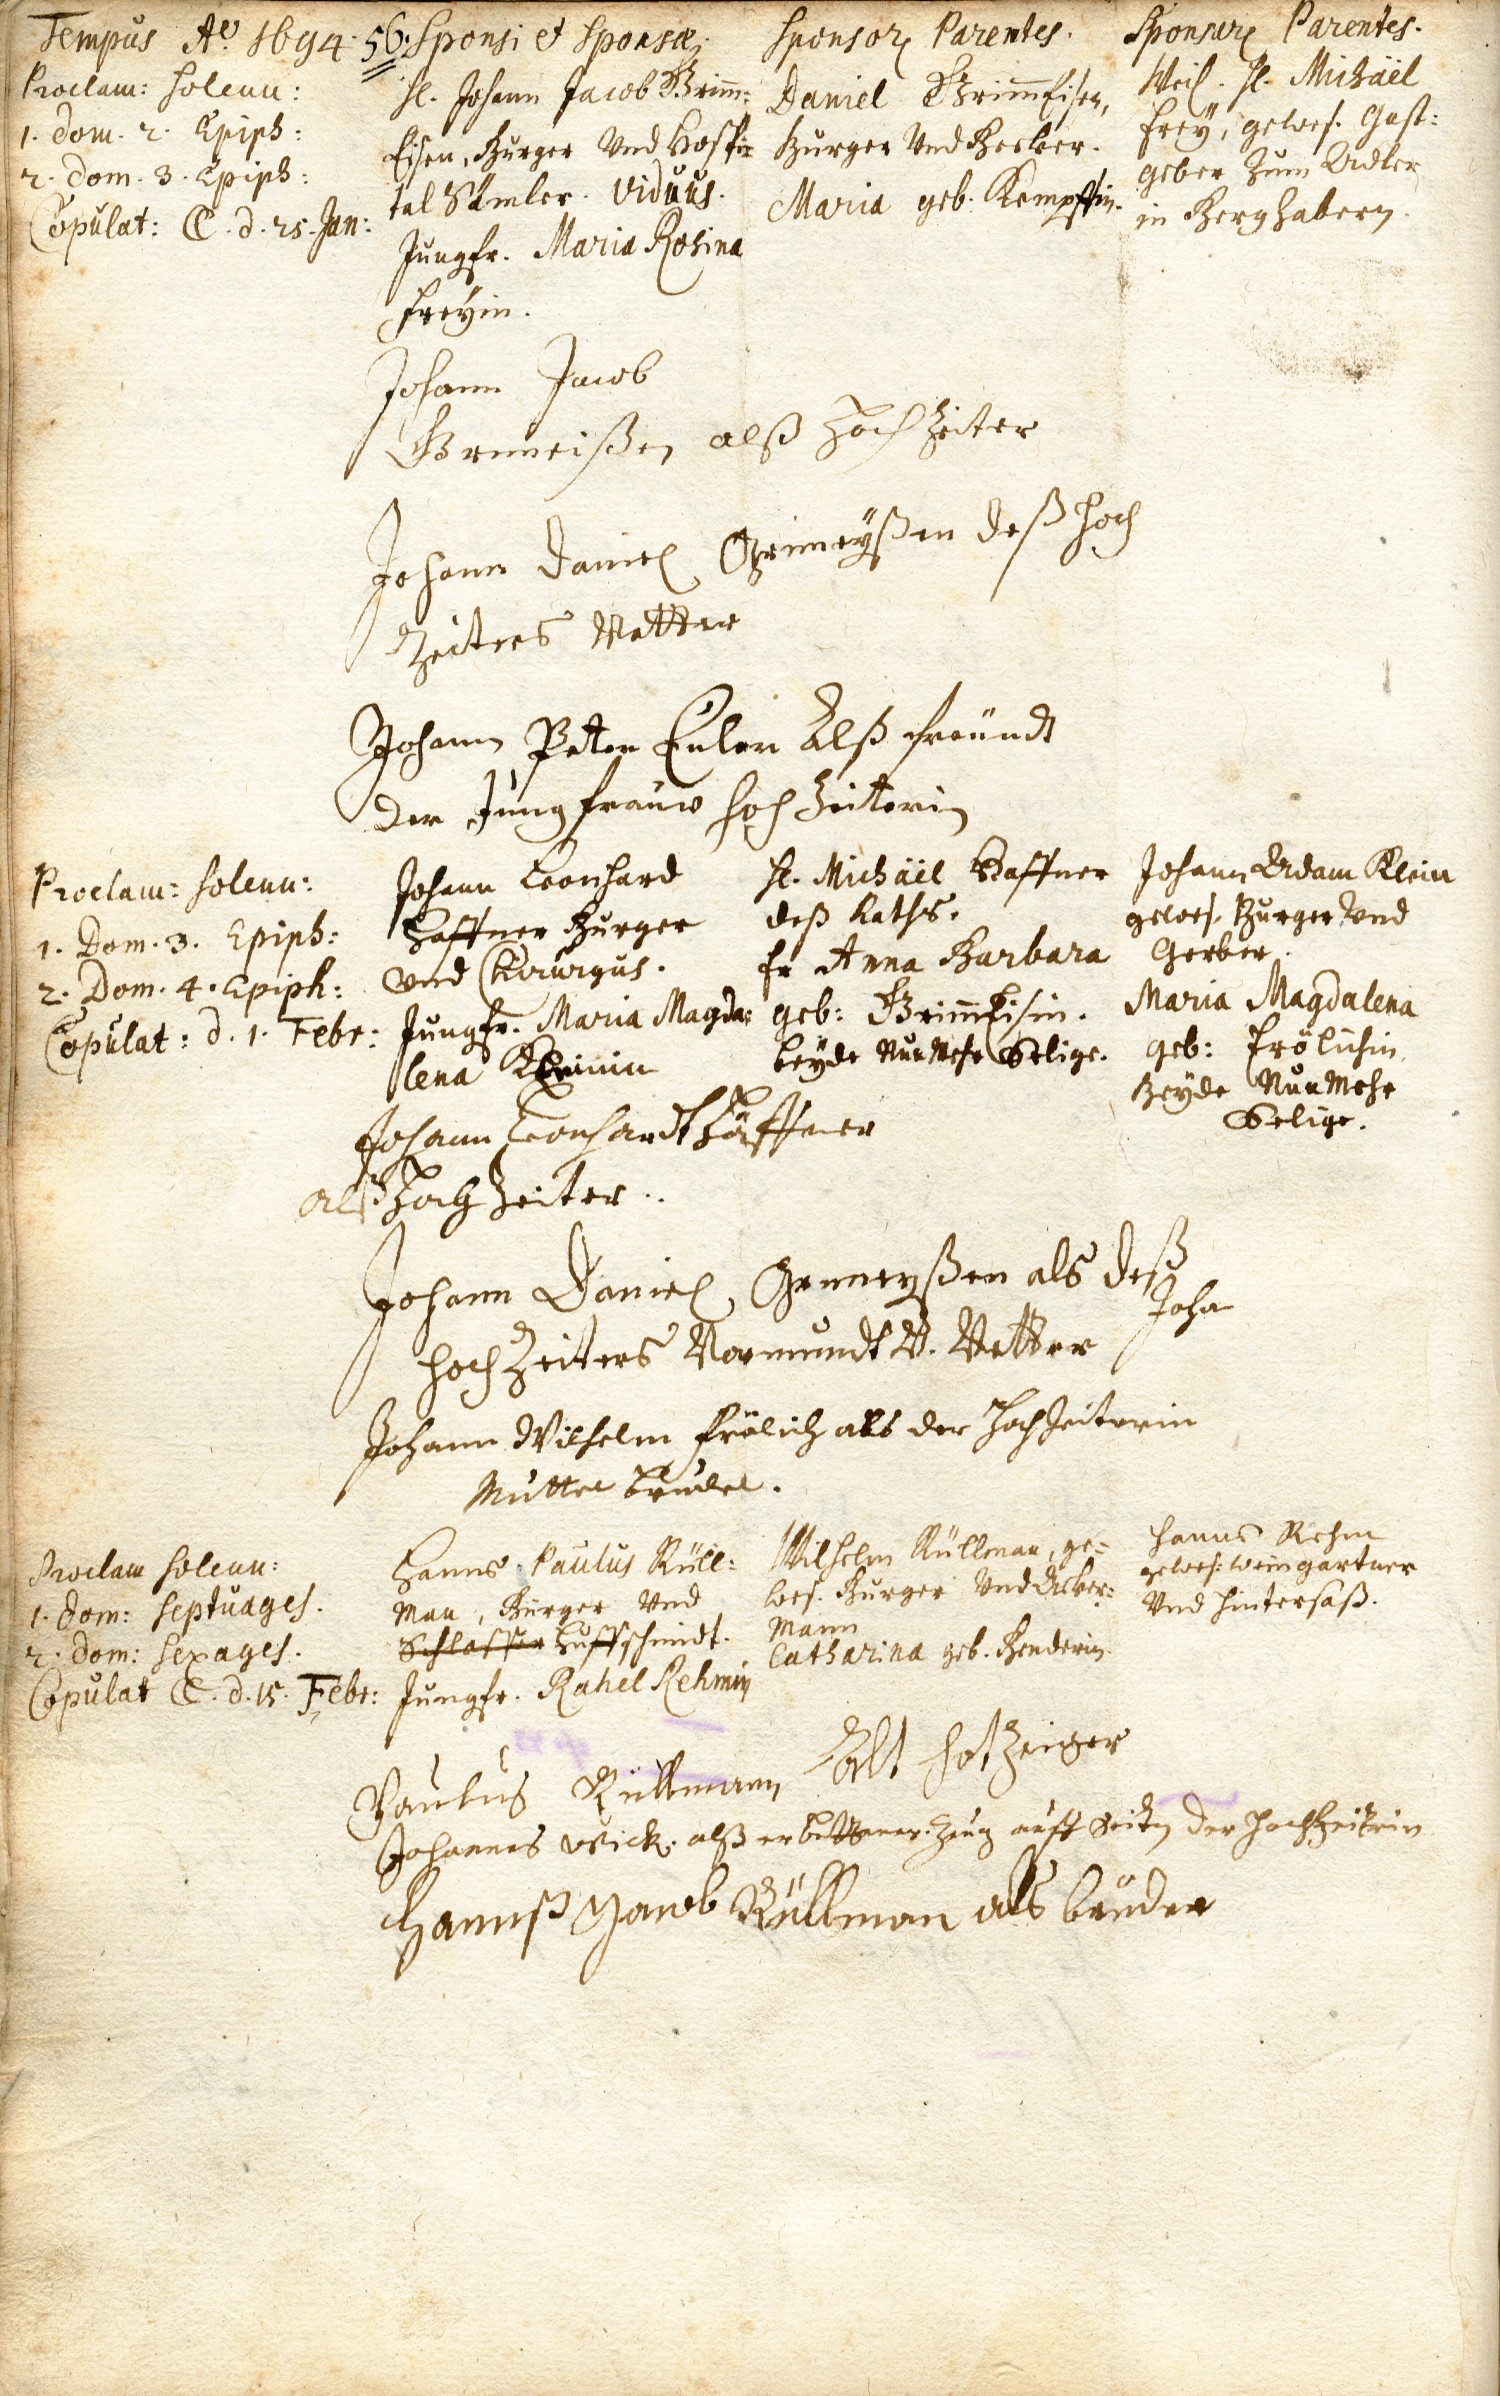 Tempus Aº 1694. 56. Sponsi et Sponsæ. Sponsorz Parentes. Sponsarz Parentes.
Proclam: solenn:
1. Dom. 2. Epiph:
2. Dom. 3. Epiph:
Copulat: C. d. 25. Jan:
H. Johann Jacob Grimm:
Eisen, Burger Und Hospi=
tal Sümler. Viduus.
Jungfr. Maria Rosina
Freyin.
Daniel GrimmEisen,
Burger Und Becker.
Maria geb. Kempffin.
Weil. H. Michäel
Frey, gewes. Gast:
geber Zum Adler
in Berghabern.
Johann Jacob
Grimeißen alß HochZeiter
Johann Daniel Grimeyßen deß Hoch
Zeiters Vetter
Johann Peter Euler Alß freündt
der Jungfrauw HochZeiterin
Proclam: solenn:
1. Dom. 3. Epiph:
2. Dom. 4. Epiph:
Copulat: d. 1. Febr:
Johann Leonhard
Haffner Burger
und Chirurgus.
Jungfr. Maria Magda:
lena Kleinin
H. Michäel Haffner
deß Raths.
Fr Anna Barbara
geb: GrimmEisin.
beyde NunMehr Selige.
Johann Adam Klein
gewes. Burger Und
Gerber.
Maria Magdalena
geb: Frölichin.
Beyde NunMehr
Selige.
Johann Leonhardt Häffner
alß HochZeiter..
Johann Daniel Grimeyßen als deß
HochZeiters Vormundt V. Vetter Joha
Johann Wilhelm Frölich als der HochZeiterin
Mutter Bruder.
Proclam solenn:
1. Dom: Septuages.
2. Dom: Sexages.
Copulat C. d. 15. Febr:
Hanns Paulus Rüll:
Man, Burger Und
Schlosser Huffschmidt.
Jungfr. Rahel Rehmin
Wilhelm Rüllman, ge=
wes. Burger Und Acker:
Mann
Catharina geb. Benderin.
Hanns Rehm
gewes. Weingartner
Und Hintersaß.
Paulus Rüllmann Alt HotZeiger
Johannes Wick. alß erbettener Zeug auff Seiten der HochZeiterin
Hannß Jacob Rüllman als bruder